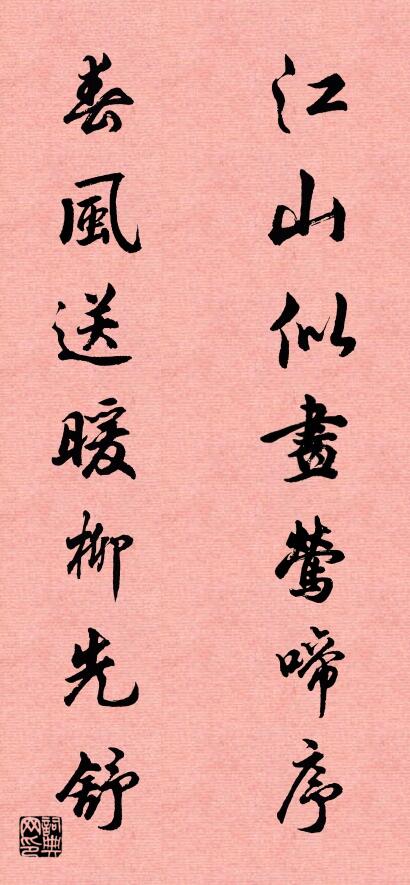 江山似畫鶯啼序
春風送暖柳先舒
詞典网印